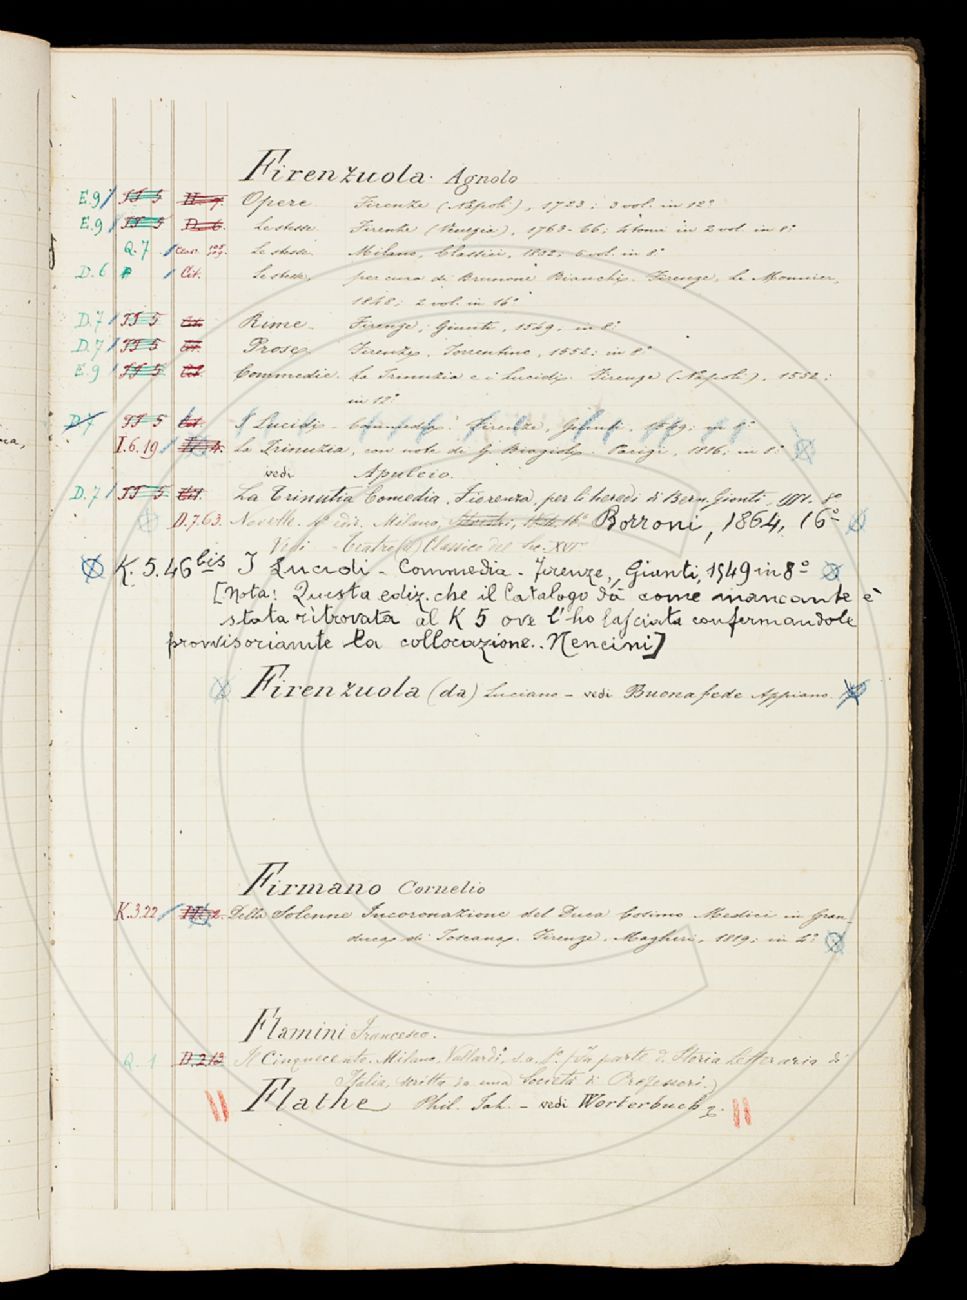 Firenzuola. Agnolo
E.9 / II 5 Opere. Firenze (Napoli), 1723; 3 vol. in 12°
E.9 / II 5 D. 6. Le stesse. Firenze (Venezia), 1763-66; 4 tomi in 2 vol. in 8°
Q.7 / Le stesse. Milano, Classici, 1802; 5 vol. in 8°
D.6 / Cit. Le stesse. per cura di Brunone Bianchi. Firenze, Le Monnier,
1848; 2 vol. in 16°
D.7 / II 5 Cit. Rime. Firenze, Giunti, 1549, in 8°
D.7 / II 5 Cit. Prose. Firenze, Torrentino, 1552; in 8°
E.9 / II 5 Cit. Commedie. La Trinuzia e i Lucidi. Firenze (Napoli), 1552;
in 12°
D.7 II 5 Cit. I Lucidi - Commedia. Firenze, Giunti, 1549; in 8°
I.6.19 / La Trinuzia, con note di G. Biagioli. Parigi, 1816, in 8°
vedi Apuleio.
D.7 / II 5 Cit. La Trinutia Comedia, Fiorenza, per li heredi di Bern. Giunti, 8°
D.7.63. Novelle. Milano, Borroni, 1864, 16°
Vedi Teatro Classico del Sec. XVI°
K.5.46 bis I Lucidi - Commedia - Firenze, Giunti, 1549 in 8°
[Nota: Questa ediz. che il Catalogo dà come mancante è
stata ritrovata al K 5 ove l'ho lasciata confermandole
provvisoriamte la collocazione.. Nencini]
Firenzuola (da) Luciano - vedi Buonafede Appiano.
Firmano Cornelio
K.3.22 / Della Solenne Incoronazione del Duca Cosimo Medici in Gran-
duca di Toscana. Firenze, Magheri, 1819; in 4°
Flamini Francesco.
Q. 1 D.2.12 Il Cinquecento. Milano, Vallardi, s.a. parte d. Storia Letteraria di
Italia, scritta da una Società di Professori.)
Flathe Phil. Joh. - vedi Worterbuch